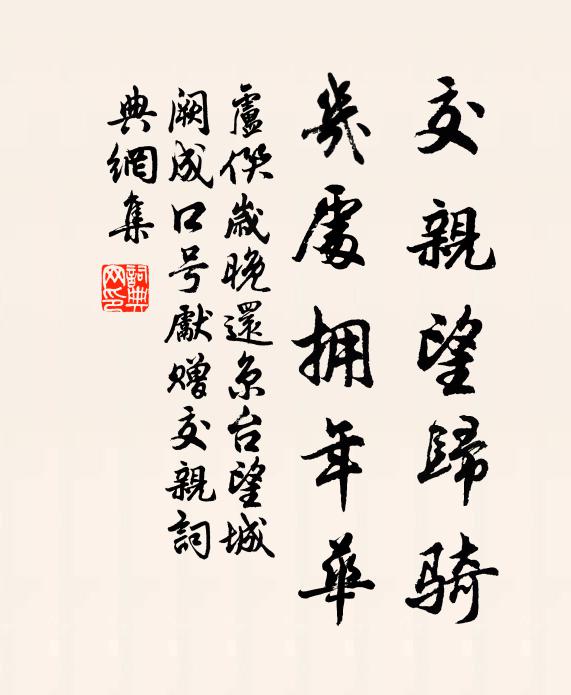 交親望歸騎
幾處擁年華
盧僎歲晚還京台望城
闕成口号獻贈交親詞
典網集
詞典网印